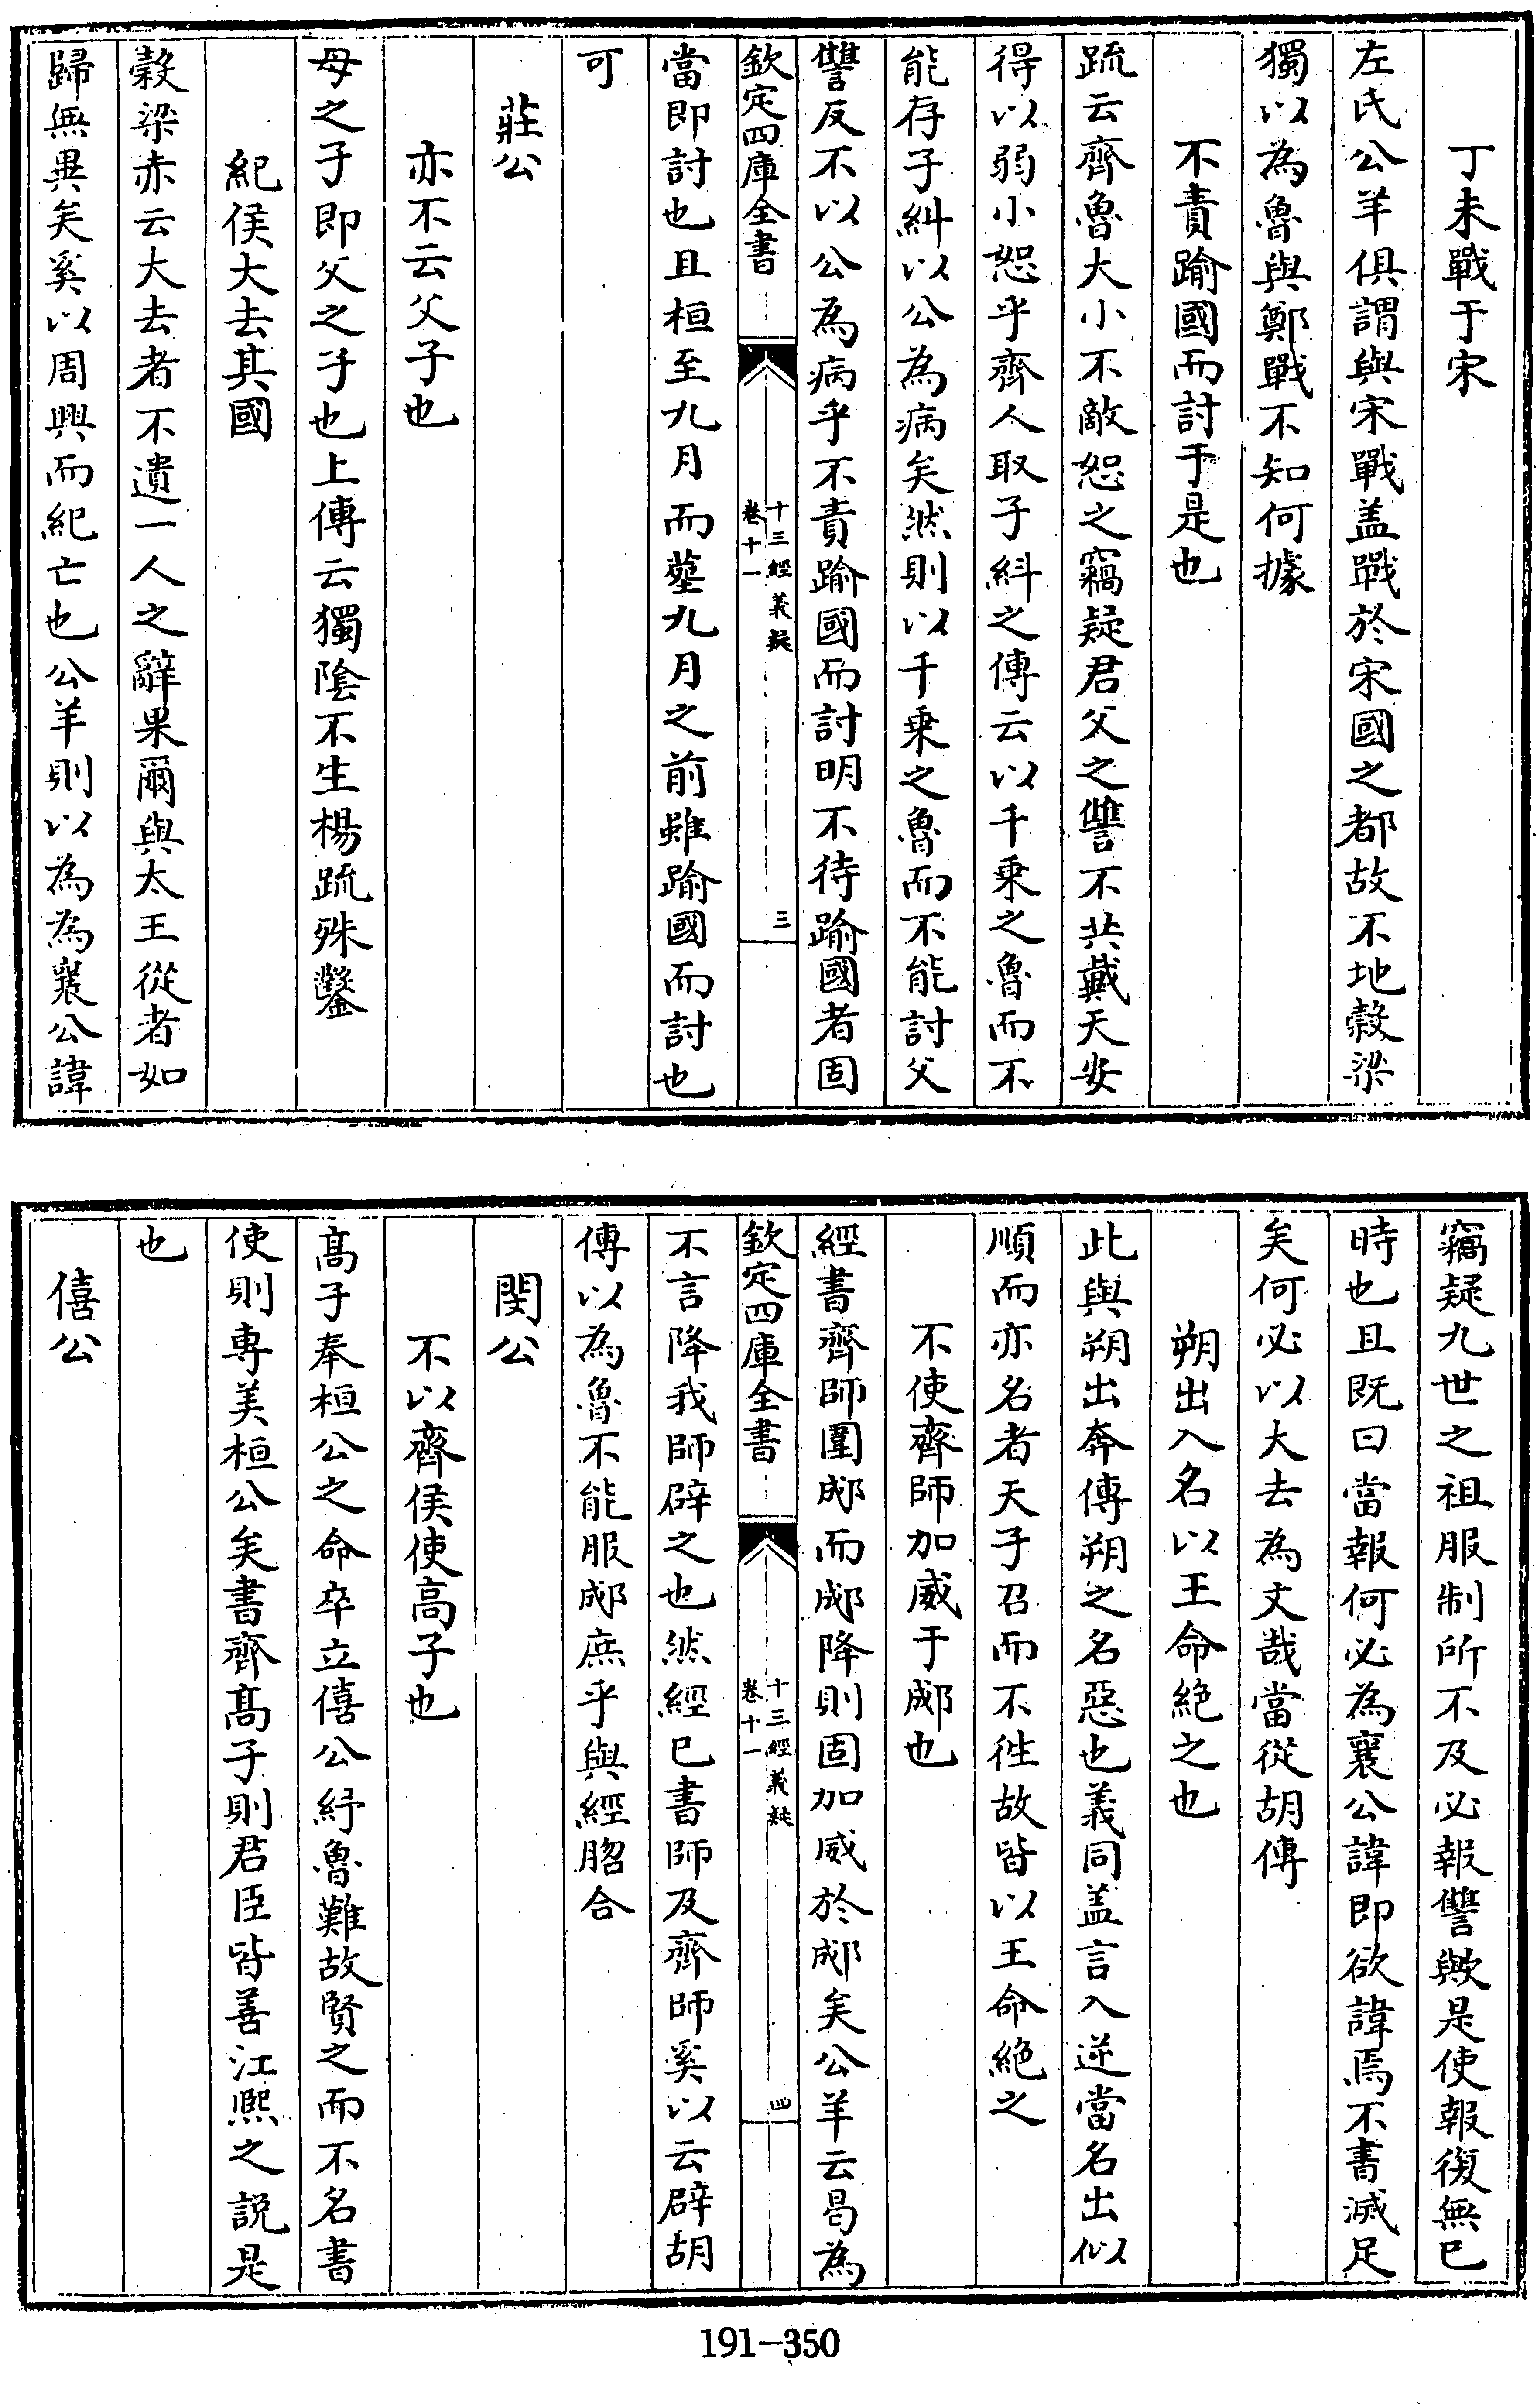 丁未戰于宋
左氏公羊俱謂與宋戰盖戰於宋國之都故不地榖梁
獨以為魯與鄭戰不知何據
不責踰國而討于是也
疏云齊魯大小不敵恕之竊疑君父之讐不共戴天安
得以弱小恕乎齊人取子糾之傳云以千乗之魯而不
能存子糾以公為病矣然則以千乗之魯而不能討父
讐反不以公為病乎不責踰國而討明不待踰國者固
欽定四庫全書
十三經義疑
卷十一
三
當即討也且桓至九月而塟九月之前雖踰國而討也
可
莊公
亦不云父子也
母之子即父之子也上傳云獨陰不生楊疏殊鑿
紀侯大去其國
榖梁赤云大去者不遺一人之辭果爾與太王從者如
歸無異矣奚以周興而紀亡也公羊則以為為襄公諱
竊疑九世之祖服制所不及必報讐歟是使報復無已
時也且既曰當報何必為襄公諱即欲諱焉不書滅足
矣何必以大去為文哉當從胡傳
朔出入名以王命絶之也
此與朔出奔傳朔之名惡也義同盖言入逆當名出似
順而亦名者天子召而不徃故皆以王命絶之
不使齊師加威于郕也
經書齊師圍郕而郕降則固加威於郕矣公羊云曷為
欽定四庫全書
十三經義疑
卷十一
四
不言降我師辟之也然經已書師及齊師奚以云辟胡
傳以為魯不能服郕庶乎與經脗合
閔公
不以齊侯使高子也
髙子奉桓公之命卒立僖公紓魯難故賢之而不名書
使則專美桓公矣書齊髙子則君臣皆善江熈之説是
也
僖公
191-350